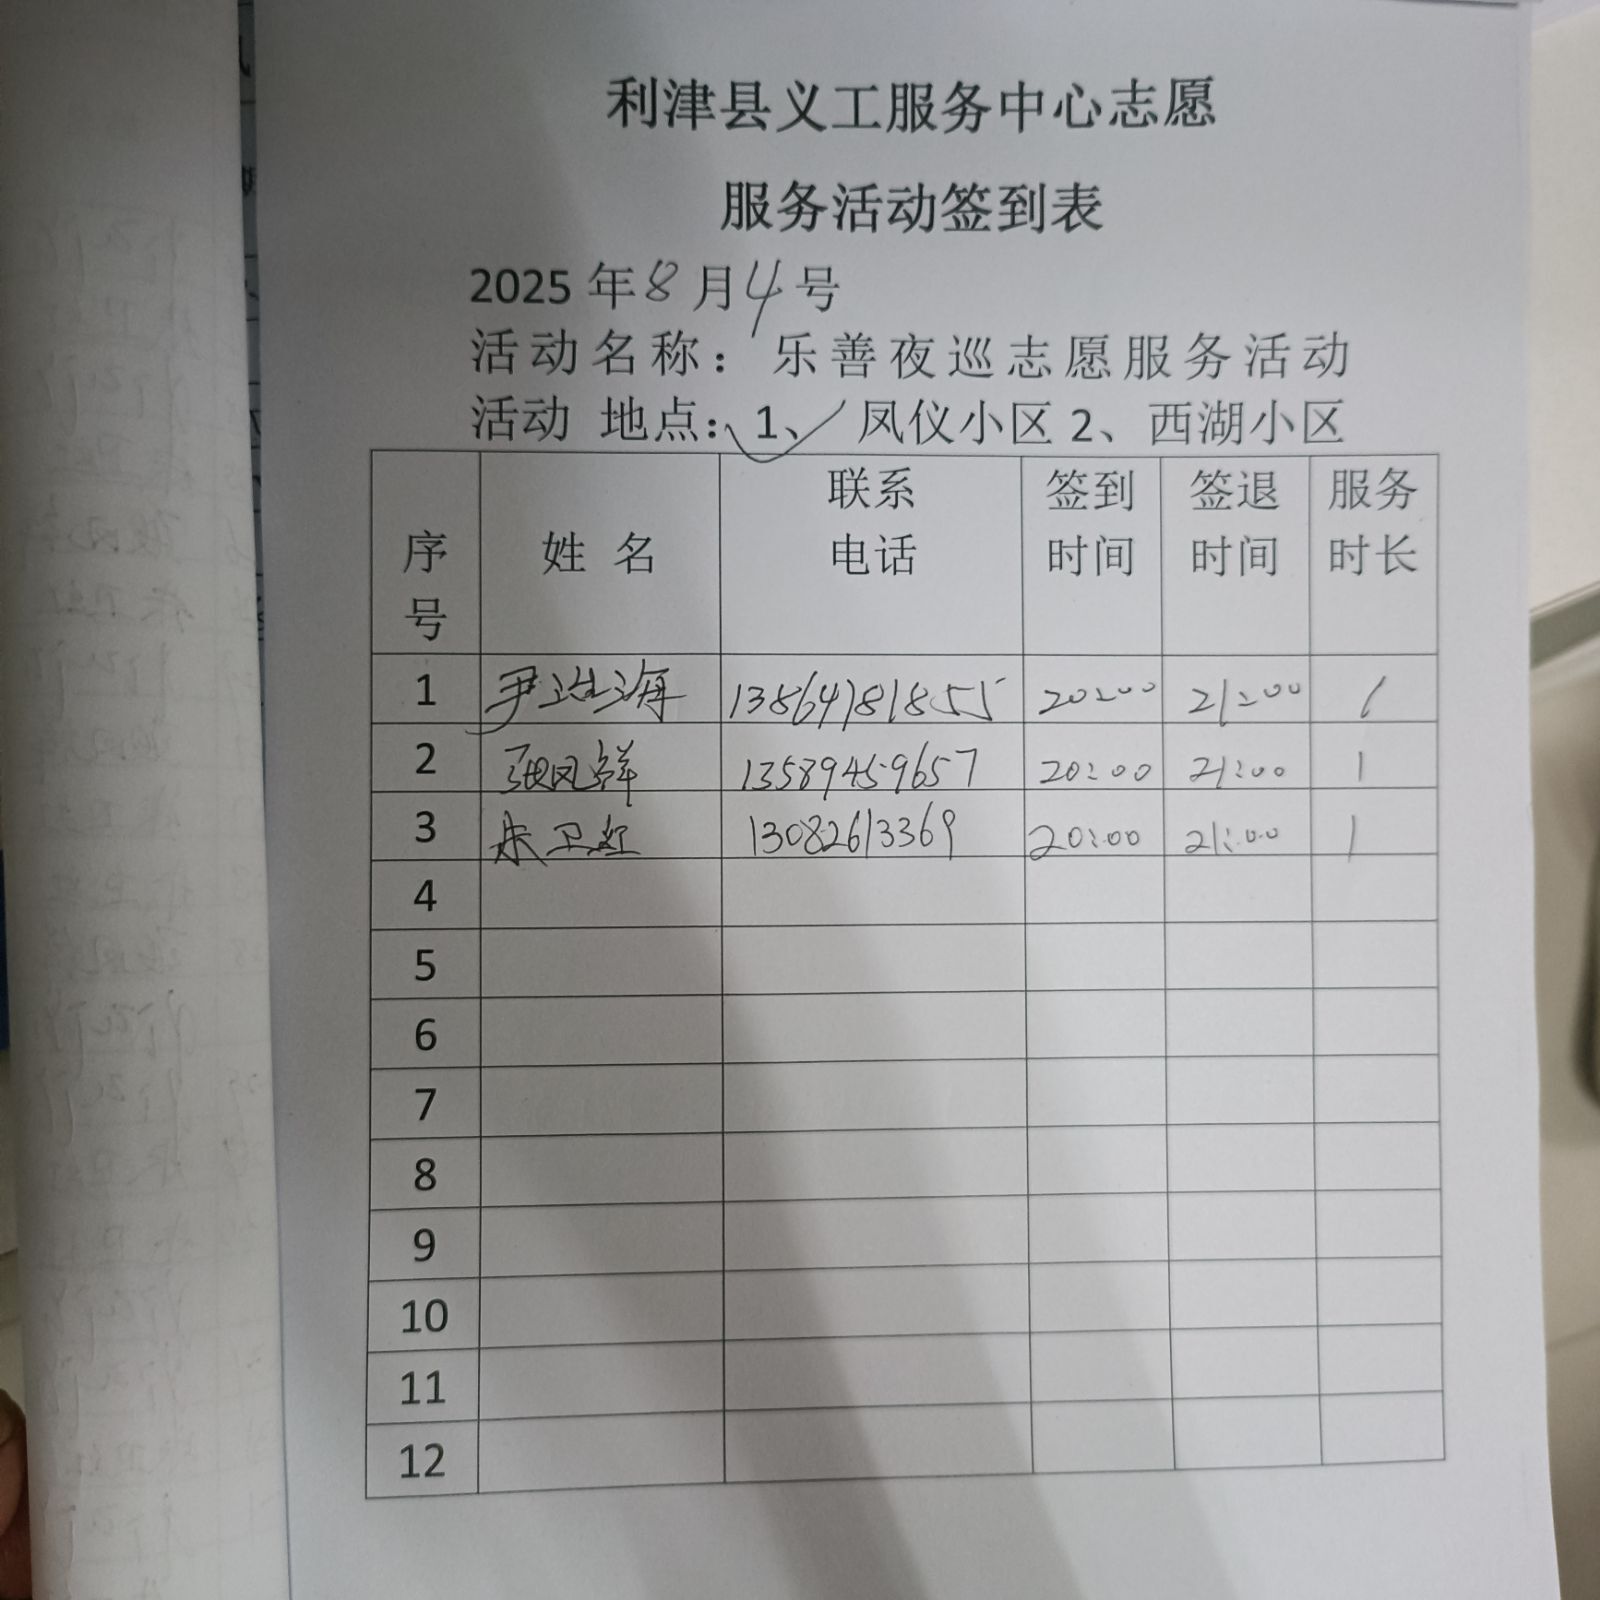 利津县义工服务中心志愿
服务活动签到表
2025 年 8 月 4 号
活动名称: 乐善夜巡志愿服务活动
活动 地点: 1、凤仪小区 2、西湖小区
序号 姓 名 联系电话 签到时间 签退时间 服务时长
1 尹海 13864781855 20:00 21:00 1
2 张凤祥 13589459657 20:00 21:00 1
3 朱卫红 13082613369 20:00 21:00 1
4
5
6
7
8
9
10
11
12